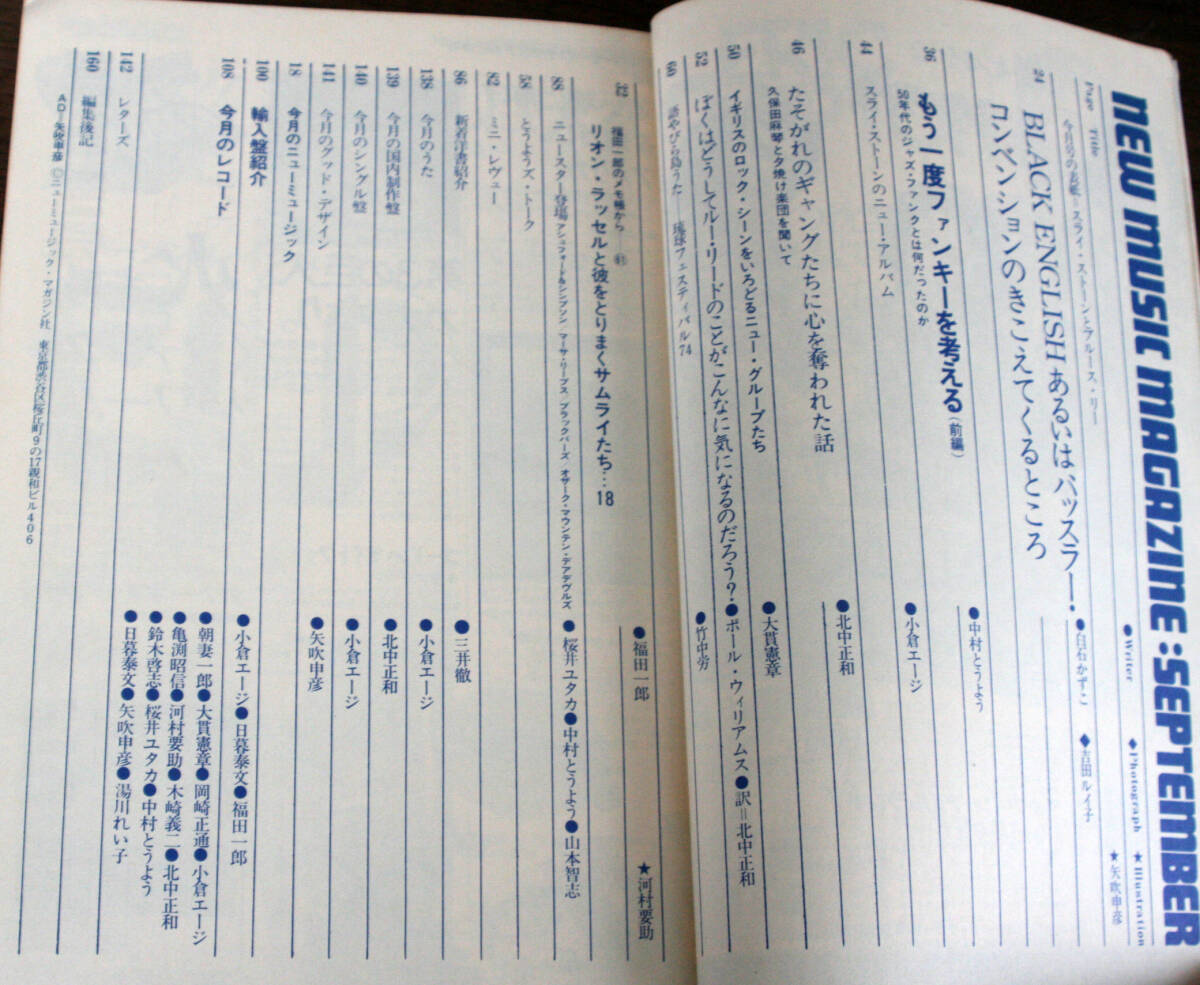 NEW MUSIC MAGAZINE : SEPTEMBER
Page Title ●Writer ◆Photograph ★Illustration
今月号の表紙=スライ・ストーンとアルース・リー ★矢吹申彦
24 BLACK ENGLISH あるいはバッスラー! ●白石かずこ ◆吉田ルイ子
コンペンションのきこえてくるところ
36 もう一度ファンキーを考える(前編) ●中村とうよう
50年代のジャズ・ファンクとは何だったのか
44 スライ・ストーンのニュー・アルバム ●小倉エージ
46 たそがれのギャングたちに心を奪われた話 ●北中正和
久保田麻琴と夕焼け楽団を聞いて
50 イギリスのロック・シーンをいろどるニュー・グループたち ●大貫憲章
52 ぼくはどうしてルー・リードのことがこんなに気になるのだろう? ●ポール・ウィリアムス ●訳=北中正和
60 語やびら島うた 琉球フェスティバル74 ●竹中労
福田一郎のメモ帳から ●福田一郎 ★河村要助
リオン・ラッセルと彼をとりまくサムライたち…18
88 ニュースター登場 アシュフォード&シンプソン/マーサ・リーブス/ブラックバーズ オザーク・マウンテン・デアデヴルズ ●桜井ユタカ ●中村とうよう ●山本智志
58 とうようズ・トーク
82 ミニ・レヴュー
86 新着洋書紹介 ●三井徹
138 今月のうた ●小倉エージ
139 今月の国内制作盤 ●北中正和
140 今月のシングル盤 ●小倉エージ
141 今月のグッド・デザイン ●矢吹申彦
18 今月のニューミュージック
100 輸入盤紹介 ●小倉エージ ●日暮泰文 ●福田一郎
108 今月のレコード ●朝妻一郎 ●大貫憲章 ●岡崎正通 ●小倉エージ
●亀渕昭信 ●河村要助 ●木崎義二 ●北中正和
●鈴木啓志 ●桜井ユタカ ●中村とうよう
●日暮泰文 ●矢吹申彦 ●湯川れい子
142 レターズ
160 編集後記
AD 矢吹申彦 ©ニューミュージック・マガジン社 東京都渋谷区桜丘町9の17親和ビル406